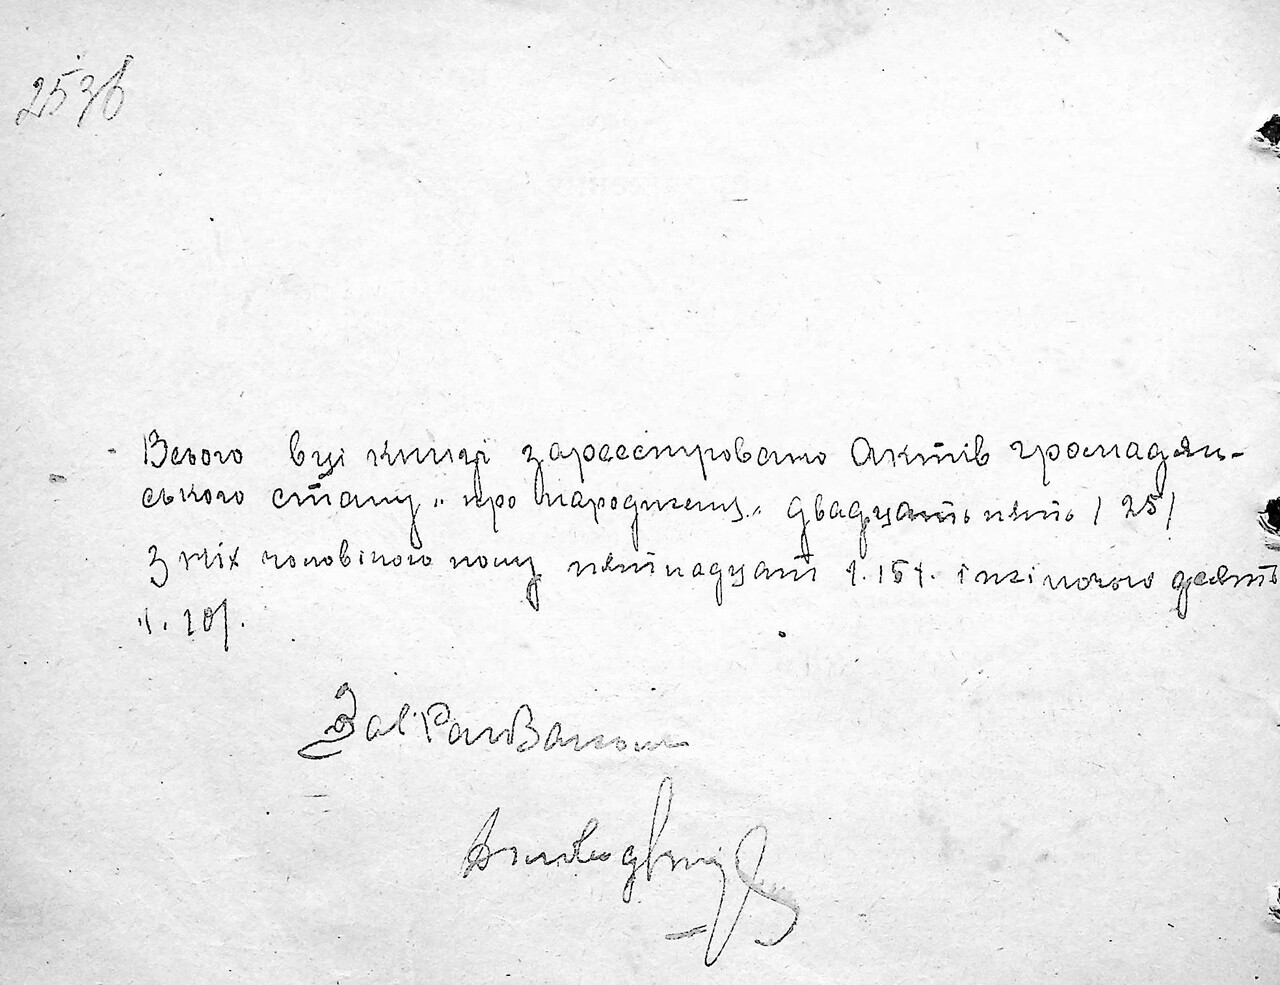 253б
Всього вці книзі зареєстровано Актів громадян-
ського стану „ про народжени„ двадцать пять / 25/
З них чоловічого полу пятнадцат /.15/. і жіночого десять
/. 10/.
Зав